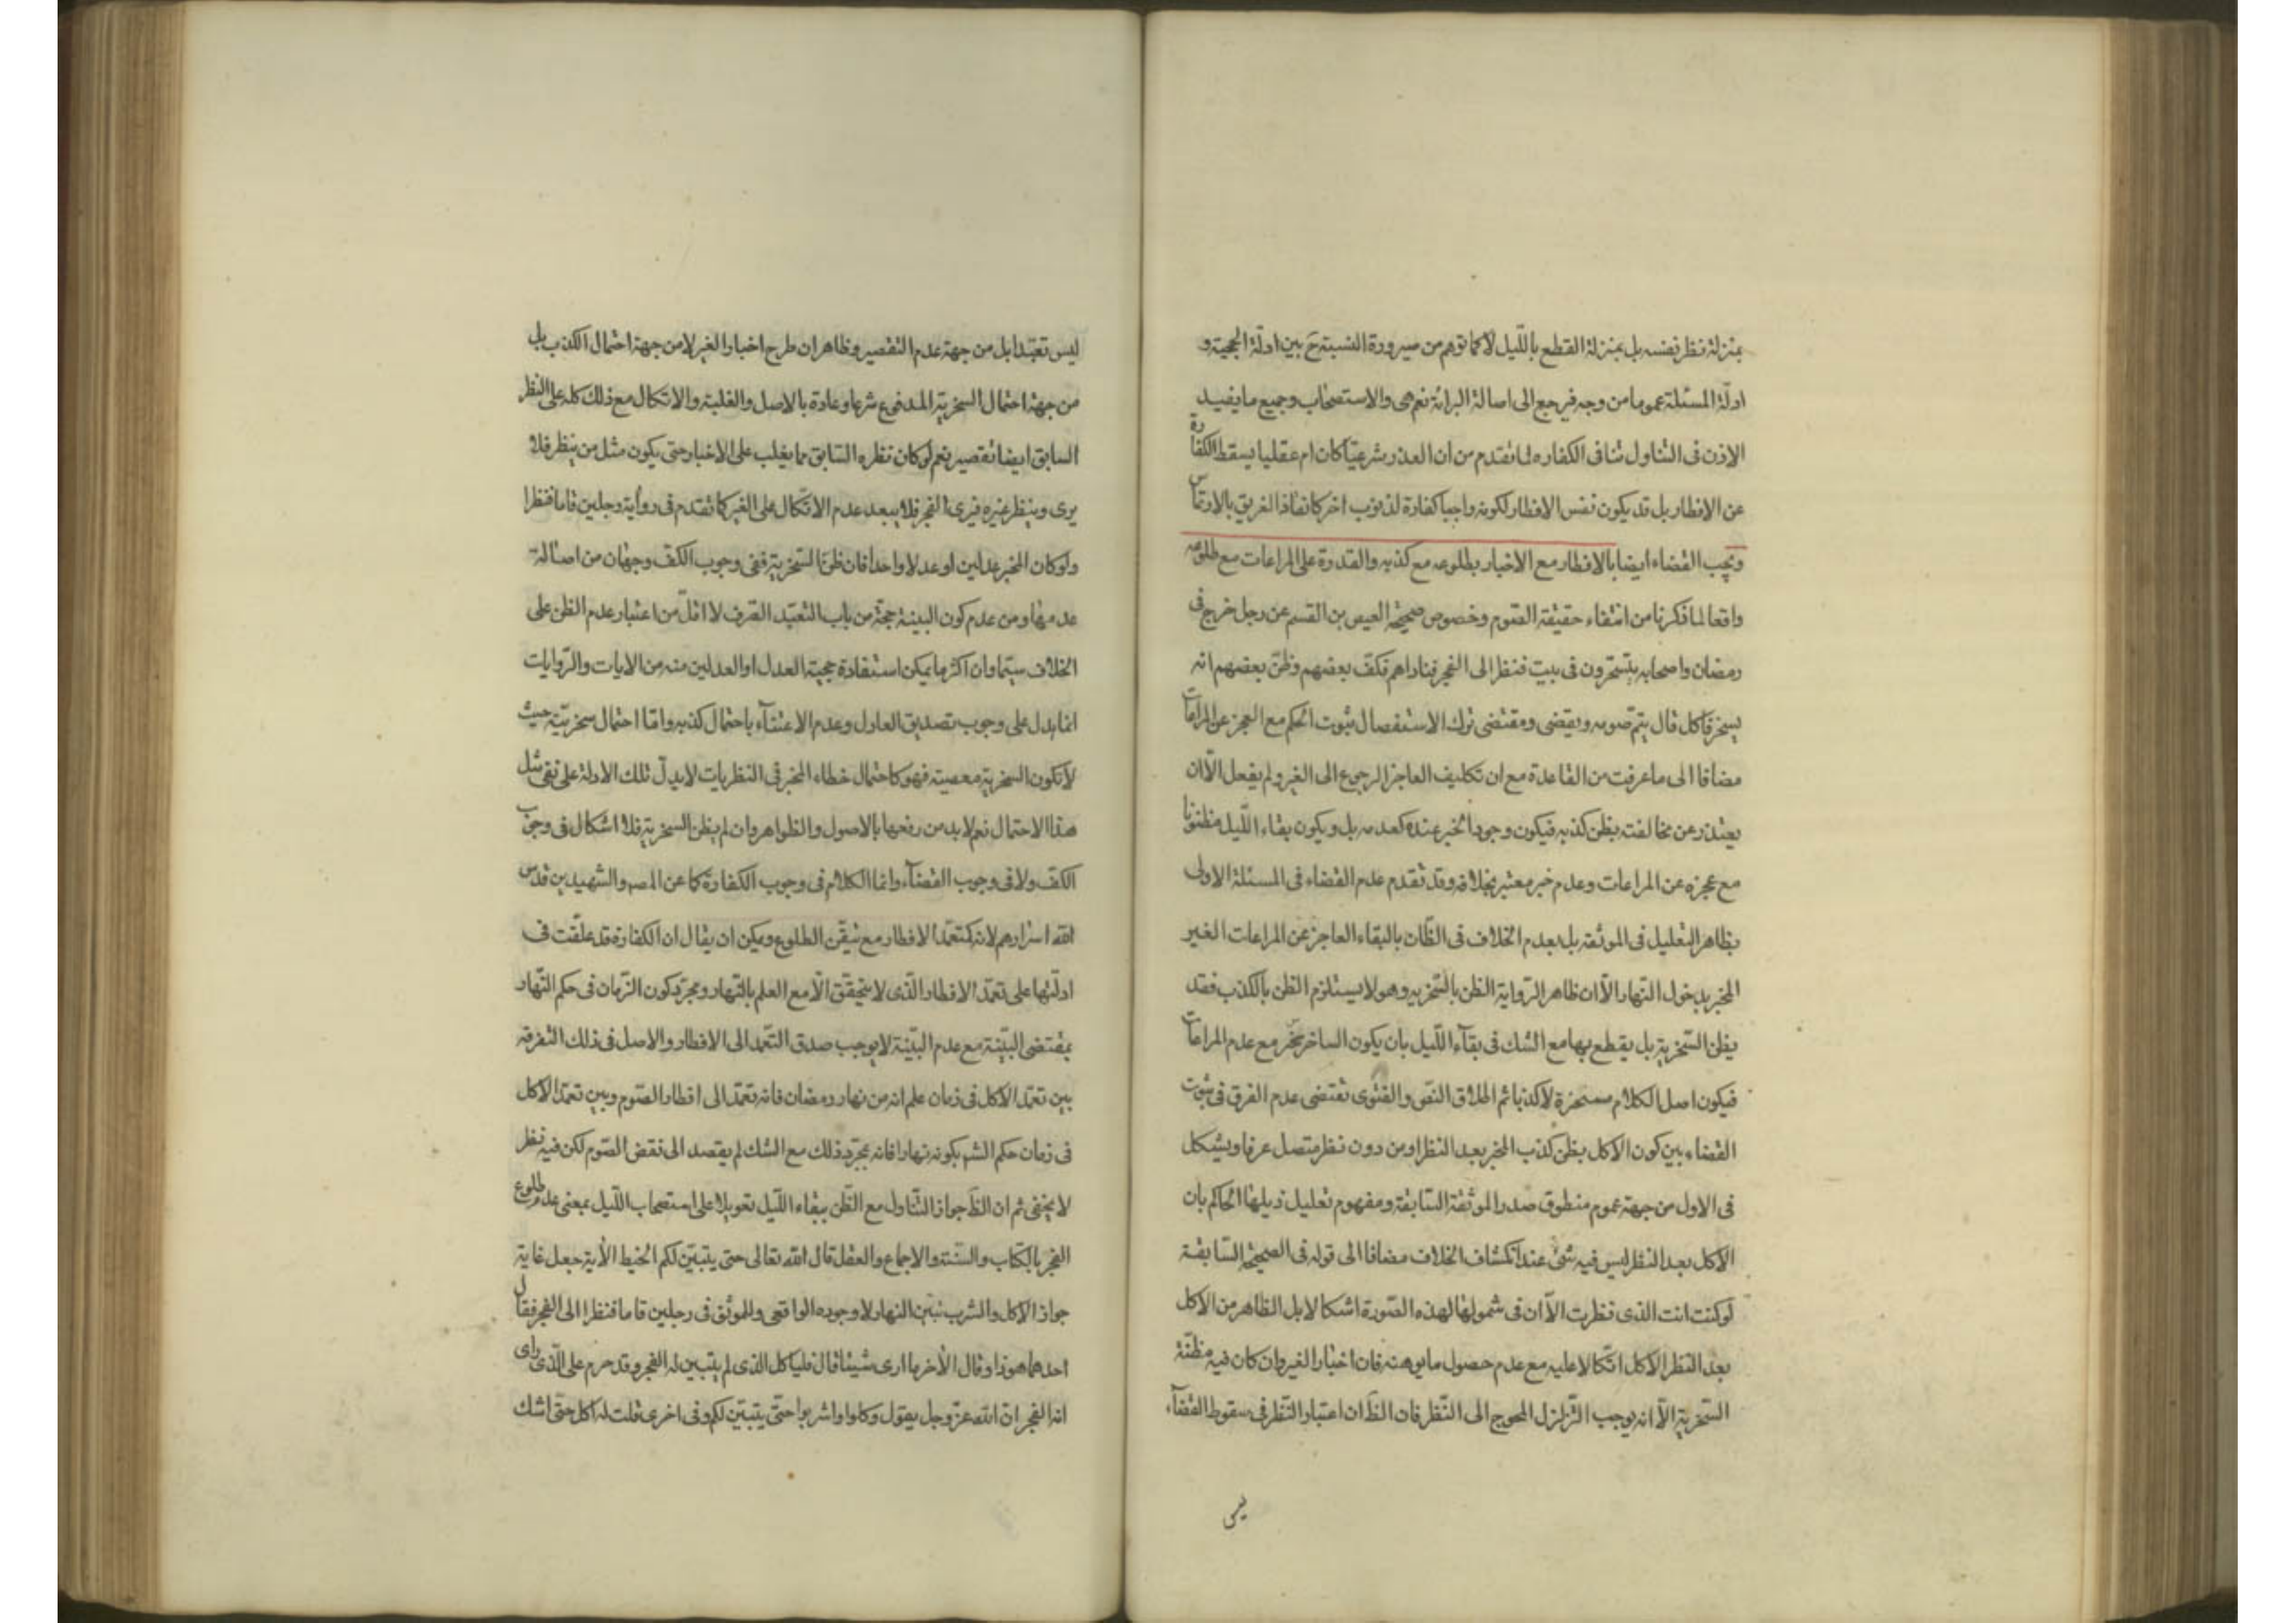 بمنزلة نظر نفسه بل بمنزلة القطع بالليل لا كما توهم من صيرورة النسبة ح بين ادلة الحجية و
ادلة المسئلة عموما من وجه فيرجع الى اصالة البرائة نعم هى والاستصحاب وجميع ما يفيد
الاذن فى التناول تنافى الكفاره لما تقدم من ان العذر شرعيا كان ام عقليا يسقط الكفارة
عن الافطار بل قد يكون نفس الافطار لكونه واجبا كفارة لذنوب اخر كانقاذ الغريق بالارتماس
ويجب القضاء ايضا بالافطار مع الاخبار بطلوعه مع كذبه والقدرة على المراعات مع طلوعه
واقعا لما ذكرنا من انتفاء حقيقة الصوم وخصوص صحيحة العيص بن القسم عن رجل خرج فى
رمضان واصحابه يتسحرون فى بيت فنظر الى الفجر فناداهم فكف بعضهم وظن بعضهم انه
يسخر فاكل قال يتم صومه ويقضى ومقتضى ترك الاستفصال ثبوت الحكم مع العجز عن المراعات
مضافا الى ما عرفت من القاعدة مع ان تكليف العاجز الرجوع الى الغير ولم يفعل الا ان
يعتذر عن مخالفته بظن كذبه فيكون وجود الخبر عنده كعدمه بل ويكون بقاء الليل مظنونا
مع عجزه عن المراعات وعدم خبر معتبر بخلافه وقد تقدم عدم القضاء فى المسئلة الاولى
بظاهر التعليل فى الموثقه بل بعدم الخلاف فى الظان بالبقاء العاجز عن المراعات الغير
المخبر بدخول النهار الا ان ظاهر الرواية الظن بالسخريه وهو لا يستلزم الظن بالكذب فقد
يظن السخرية بل يقطع بها مع الشك فى بقآء الليل بان يكون الساخر يخبر مع عدم المراعات
فيكون اصل الكلام مسخرة لا كذبا ثم اطلاق النص والفتوى تقتضى عدم الفرق فى ثبوت
القضاء بين كون الاكل بظن كذب المخبر بعد النظر او من دون نظر متصل عرفا ويشكل
فى الاول من جهة عموم منطوق صدر الموثقة السابقة ومفهوم تعليل ذيلها الحاكم بان
الاكل بعد النظر ليس فيه شئ عند انكشاف الخلاف مضافا الى قوله فى الصحيحة السابقة
لو كنت انت الذى نظرت الا ان فى شمولها لهذه الصورة اشكالا بل الظاهر من الاكل
بعد النظر الاكل اتكالا عليه مع عدم حصول ما يوهنه فان اخبار الغير وان كان فيه مظنة
السخرية الا انه يوجب التزلزل المحوج الى النظر فان الظ ان اعتبار النظر فى سقوط القضآء
ليس
ليس تعبدا بل من جهة عدم التقصير وظاهر ان طرح اخبار الغير لا من جهة احتمال الكذب بل
من جهة احتمال السخرية المدفوع شرعا وعادة بالاصل والغلبة والاتكال مع ذلك كله على النظر
السابق ايضا تقصير نعم لو كان نظره السابق مما يغلب على الاخبار حتى يكون مثل من ينظر فلا
يرى وينظر غيره فيرى الفجر فلا يبعد عدم الاتكال على الغير كما تقدم فى رواية رجلين قاما فنظرا
ولو كان المخبر عدلين او عدلا واحدا فان ظن السخرية ففى وجوب الكف وجهان من اصالة
عدمها ومن عدم كون البينة حجة من باب التعبد الصرف لا اقل من اعتبار عدم الظن على
الخلاف سيما وان اكثر ما يمكن استفادة حجية العدل او العدلين منه من الايات والروايات
انما يدل على وجوب تصديق العادل وعدم الاعتنآء باحتمال كذبه واما احتمال سخريته حيث
لا تكون السخرية معصية فهو كاحتمال خطاء المخبر فى النظريات لا يدل تلك الادلة على نفى مثل
هذا الاحتمال نعم لا بد من رفعها بالاصول والظواهر وان لم يظن السخرية فلا اشكال فى وجوب
الكف ولا فى وجوب القضآء وانما الكلام فى وجوب الكفارة كما عن المصـ والشهيدين قدس
الله اسرارهم لانه كتعمد الافطار مع تيقن الطلوع ويمكن ان يقال ان الكفارة قد علقت فى
ادلتها على تعمد الافطار الذى لا يتحقق الا مع العلم بالنهار ومجرد كون الزمان فى حكم النهار
بمقتضى البينة مع عدم البينة لا يوجب صدق التعمد الى الافطار والاصل فى ذلك التفرقه
بين تعمد الاكل فى زمان علم انه من نهار رمضان فانه تعمد الى افطار الصوم وبين تعمد الاكل
فى زمان حكم الشـ بكونه نهارا فانه بمجرد ذلك مع الشك لم يقصد الى نقض الصوم لكن فيه نظر
لا يخفى ثم ان الظ جواز التناول مع الظن ببقاء الليل تعويلا على استصحاب الليل بمعنى عدم طلوع
الفجر بالكتاب والسنة والاجماع والعقل قال الله تعالى حتى يتبين لكم الخيط الآية جعل غاية
جواز الاكل والشرب تبين النهار لا وجوده الواقعى وللموثق فى رجلين قاما فنظرا الى الفجر فقال
احدهما هو ذا وقال الآخر ما ارى شيئا قال فلياكل الذى لم يتبين له الفجر وقد حرم على الذى راى
انه الفجر ان الله عز وجل يقول وكلوا واشربوا حتى يتبين لكم وفى اخرى قلت له اكل حتى اشك